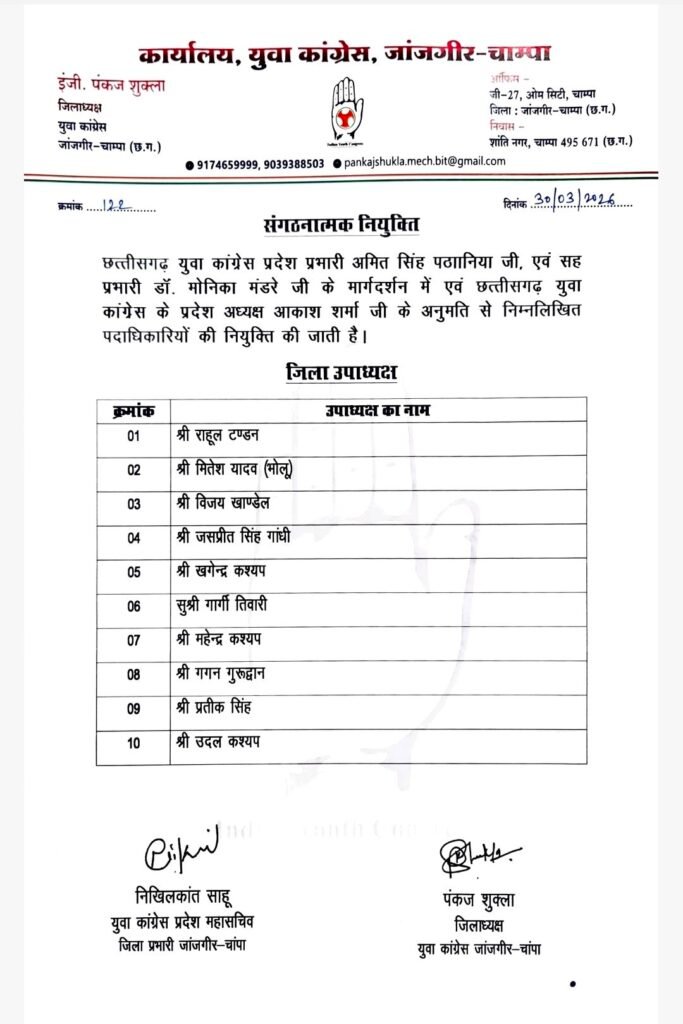 कार्यालय, युवा कांग्रेस, जांजगीर-चाम्पा
इंजी. पंकज शुक्ला
जिलाध्यक्ष
युवा कांग्रेस
जांजगीर-चाम्पा (छ.ग.)
Indian Youth Congress
ऑफिस -
जी-27, ओम सिटी, चाम्पा
जिला : जांजगीर-चाम्पा (छ.ग.)
निवास -
शांति नगर, चाम्पा 495 671 (छ.ग.)
● 9174659999, 9039388503 ● pankajshukla.mech.bit@gmail.com
क्रमांक .....122...........
दिनांक ..30/03/2026.....
संगठनात्मक नियुक्ति
छत्तीसगढ़ युवा कांग्रेस प्रदेश प्रभारी अमित सिंह पठाानिया जी, एवं सह
प्रभारी डॉ. मोनिका मंडरे जी के मार्गदर्शन में एवं छत्तीसगढ़ युवा
कांग्रेस के प्रदेश अध्यक्ष आकाश शर्मा जी के अनुमति से निम्नलिखित
पदाधिकारियों की नियुक्ति की जाती है।
जिला उपाध्यक्ष
क्रमांक उपाध्यक्ष का नाम
01 श्री राहूल टण्डन
02 श्री मितेश यादव (भोलू)
03 श्री विजय खाण्डेल
04 श्री जसप्रीत सिंह गांधी
05 श्री खगेन्द्र कश्यप
06 सुश्री गार्गी तिवारी
07 श्री महेन्द्र कश्यप
08 श्री गगन गुरूद्वान
09 श्री प्रतीक सिंह
10 श्री उदल कश्यप
निखिलकांत साहू
युवा कांग्रेस प्रदेश महासचिव
जिला प्रभारी जांजगीर-चांपा
पंकज शुक्ला
जिलाध्यक्ष
युवा कांग्रेस जांजगीर-चांपा